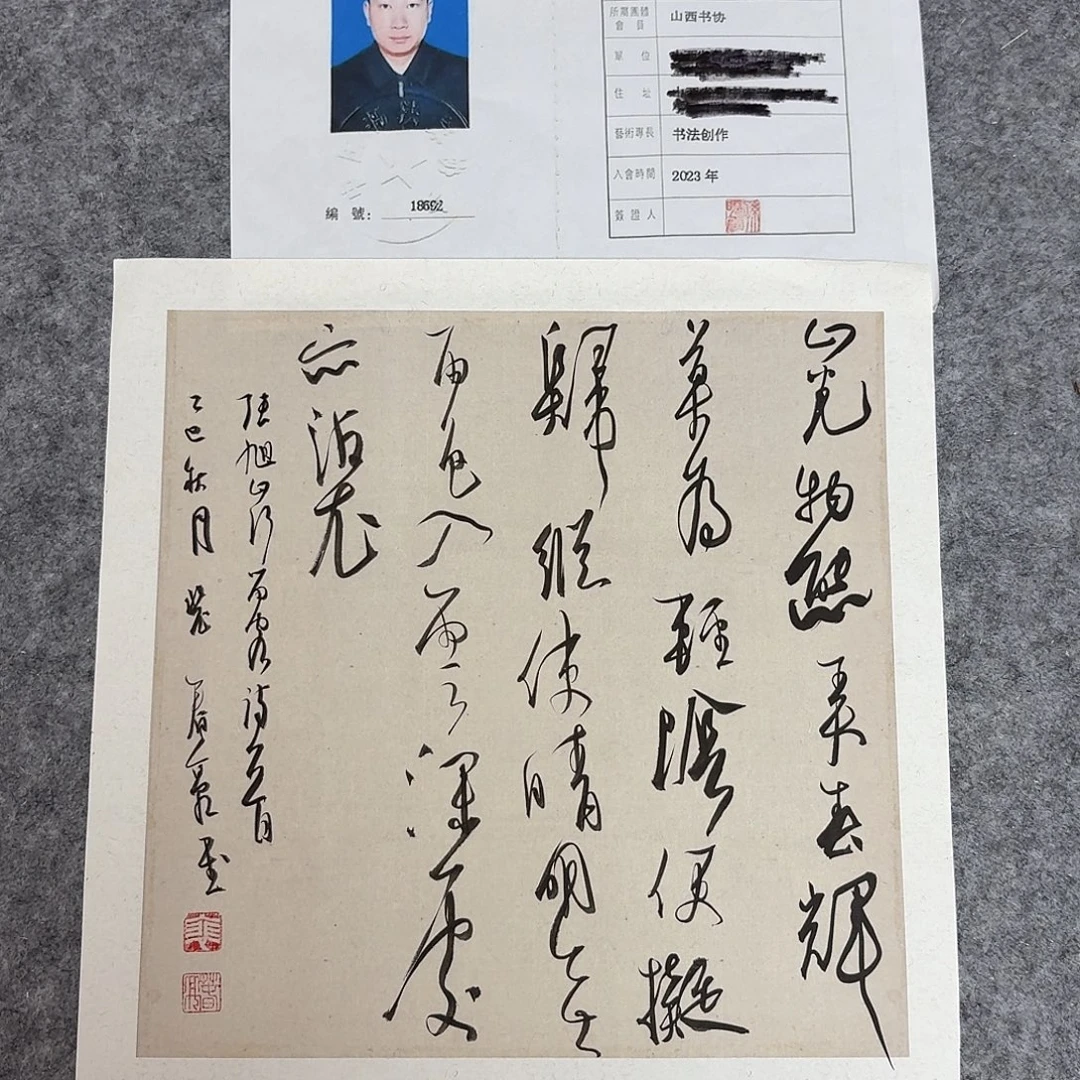 所屬團體
會 員 山西书协
單 位
住 址
藝術專長 书法创作
入會時間 2023 年
簽 證 人
編 號: 18692
山光物態弄春輝
莫為輕陰便擬
歸縱使晴明無
雨色入雲深處
亦沾衣
張旭山行留客詩一首
乙巳秋月